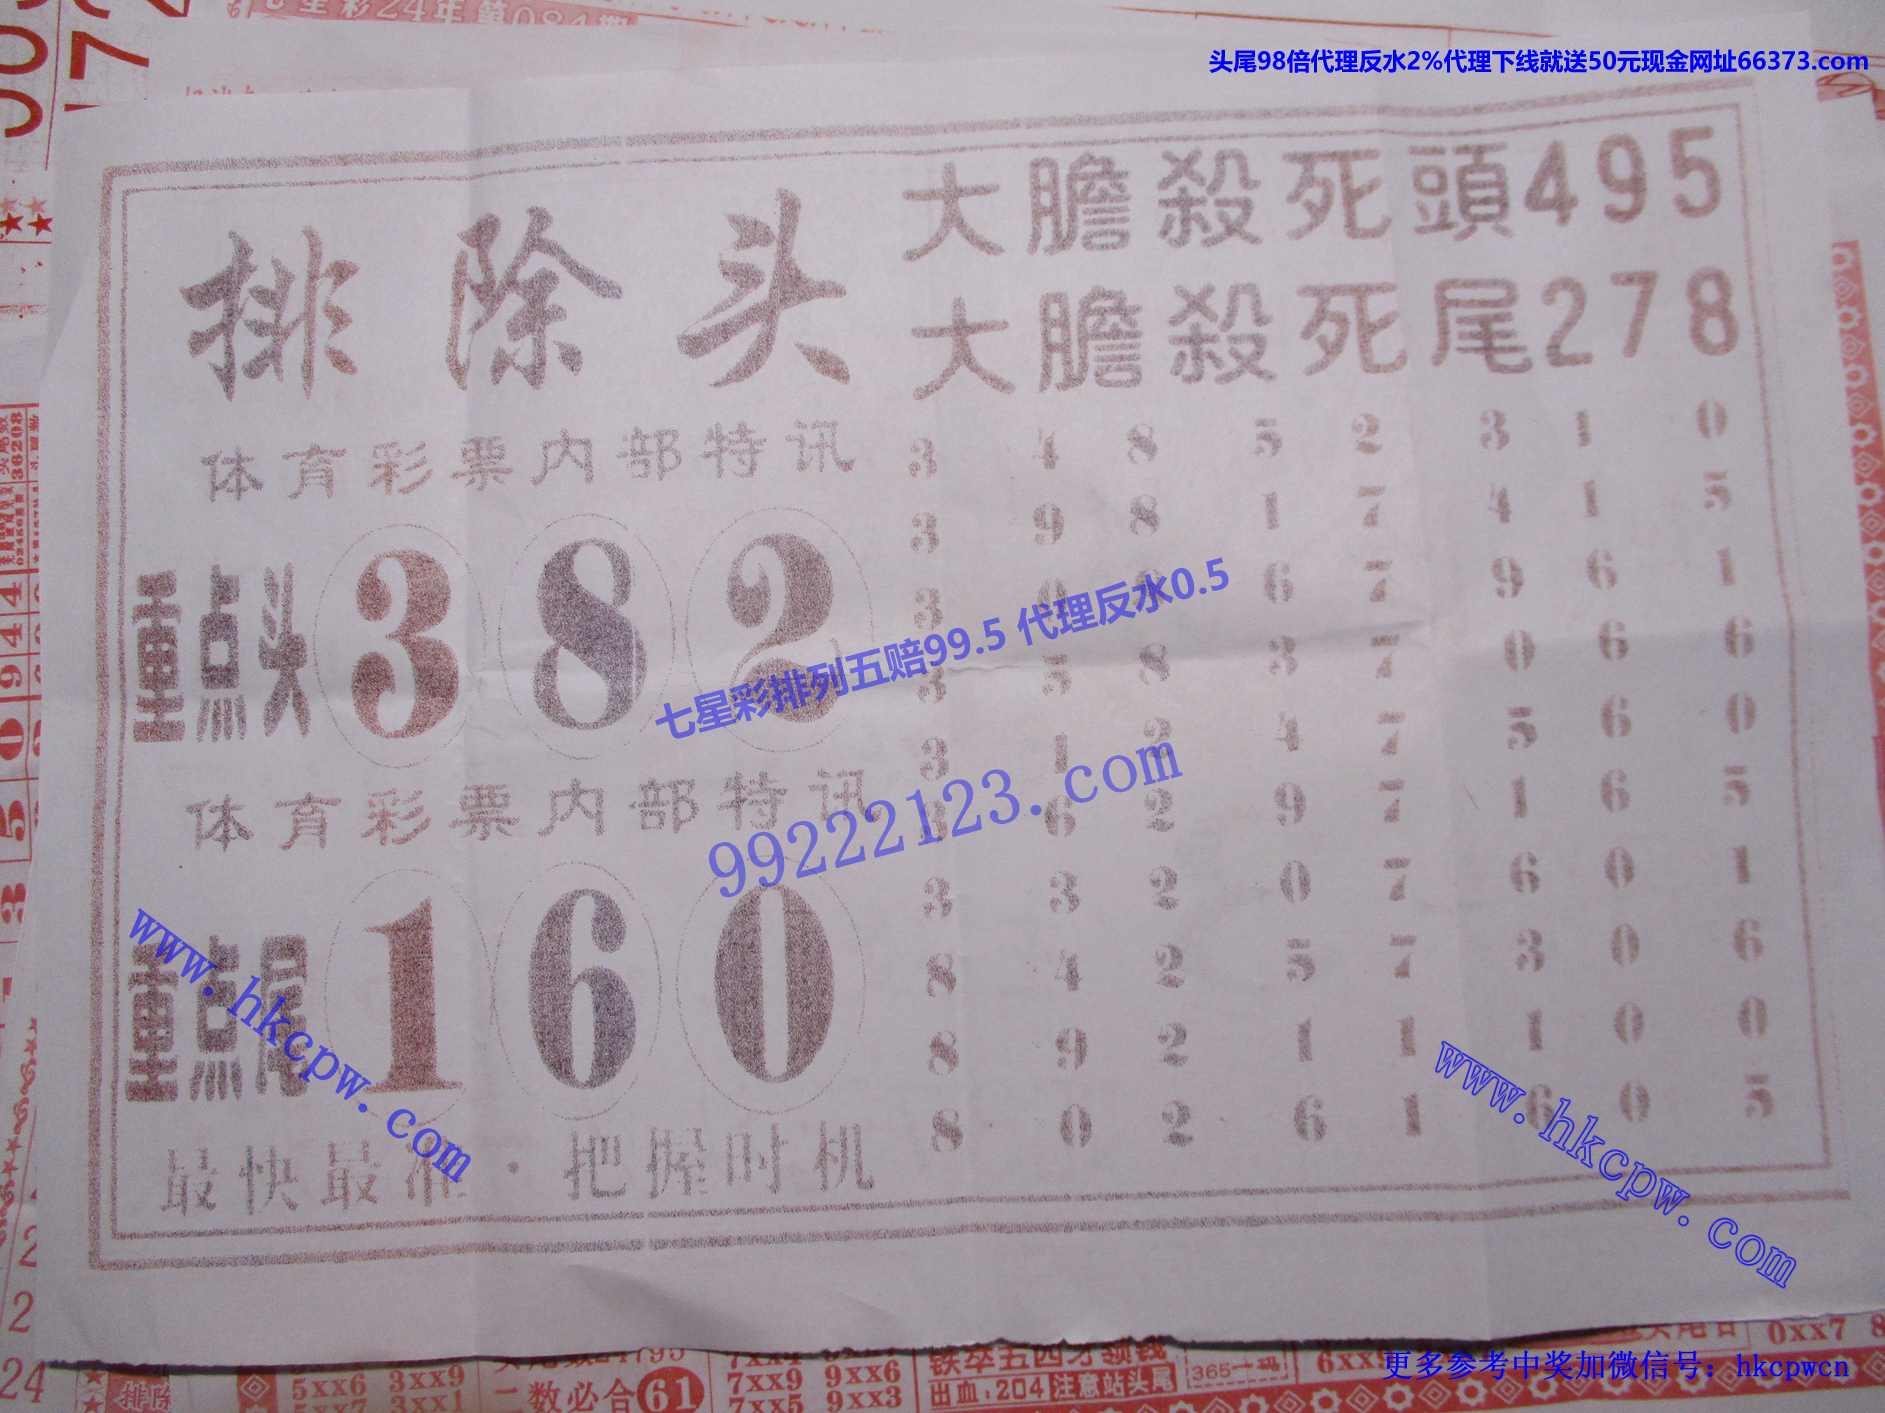 头尾98倍代理反水2%代理下线就送50元现金网址66373.com
排除头
大膽殺死頭495
大膽殺死尾278
体育彩票内部特讯
重点头 3 8 2
体育彩票内部特讯
重点尾 1 6 0
最快最准·把握时机
3 4 8 5 2 3 1 0
3 9 8 1 7 4 1 5
3 0 8 6 7 9 6 1
3 5 8 3 7 0 6 6
3 1 2 4 7 5 6 0
3 6 2 9 7 1 6 5
3 3 2 0 7 6 0 1
8 4 2 5 7 3 0 6
8 9 2 1 1 1 0 0
8 0 2 6 1 6 0 5
七星彩排列五赔99.5 代理反水0.5
99222123.com
www.hkcpw.com
www.hkcpw.com
5xx6 3xx9
3xx1
二数必合61
7xx9 9xx6
7xx5 9xx3
出血:204 注意站头尾
365一码
0xx7
更多参考中奖加微信号：hkcpwcn